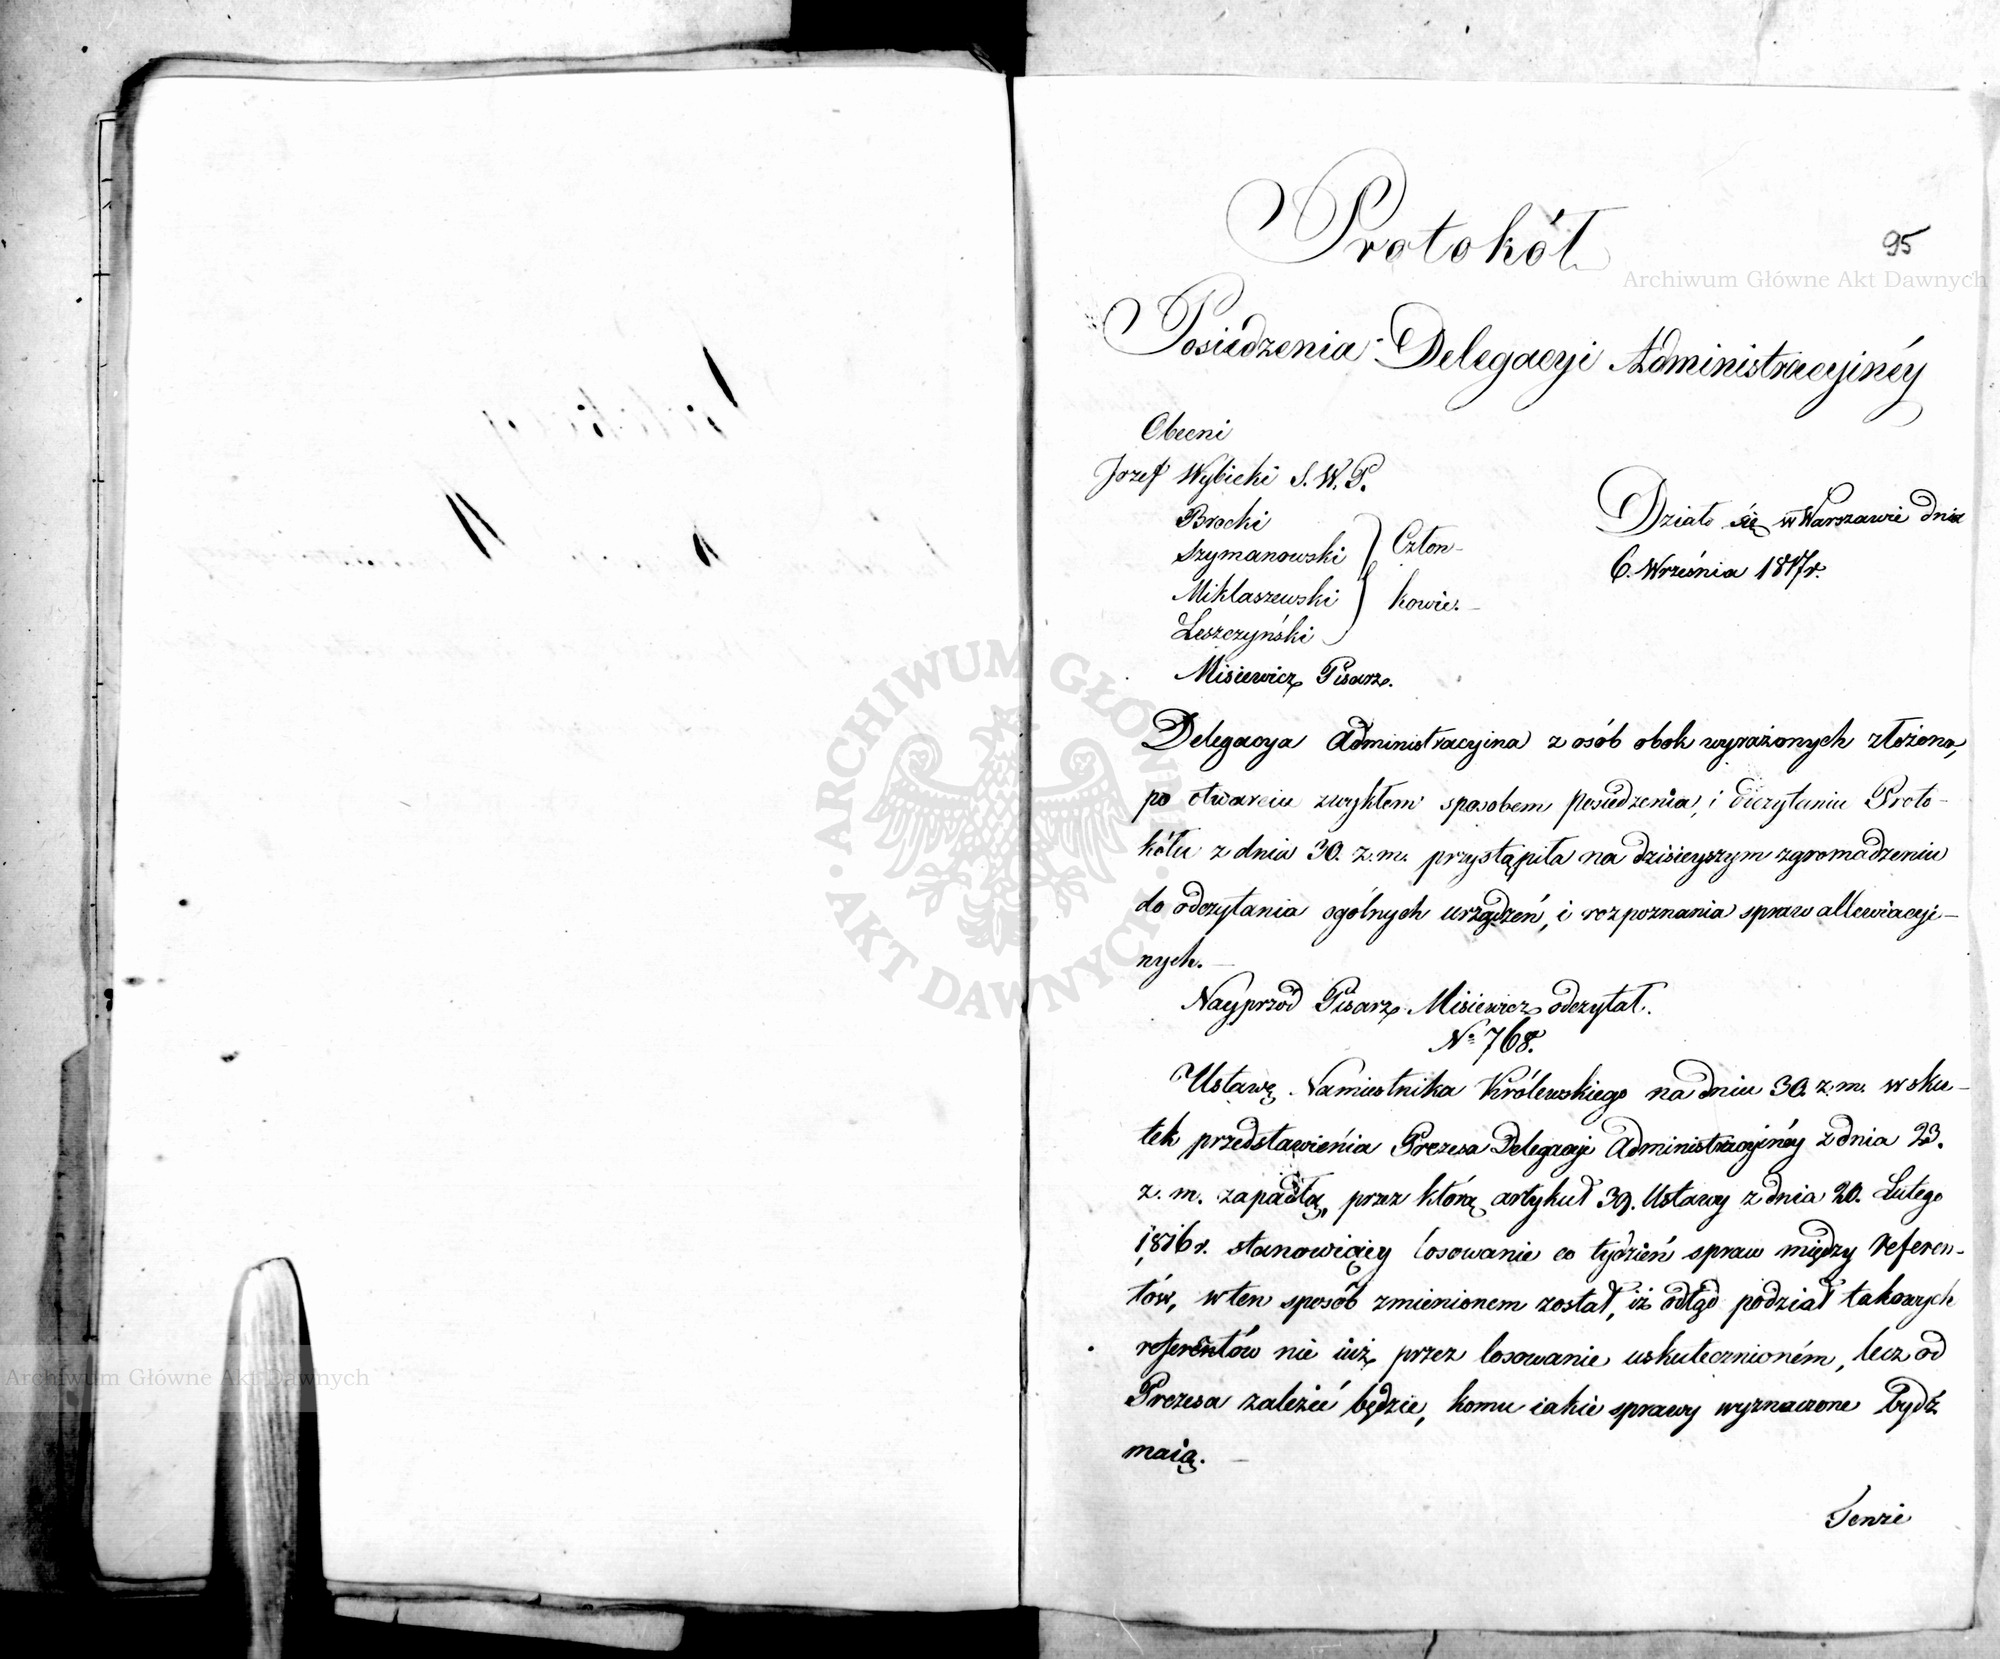 Protokół
95
Archiwum Główne Akt Dawnych
Posiedzenia Delegacyi Administracyinéy
Obecni
Jozef Wybicki S. W. P.
Brocki
Szymanowski
Człon-
Miklaszewski
kowie.
Leszczyński
Misiewicz Pisarz.
Działo się w Warszawie dnia
6. Września 1817r.
Delegacya Administracyina z osób obok wyrażonych złożona,
po otwarciu zwykłem sposobem posiedzenia, i odczytaniu Proto-
kółu z dnia 30. z. m. przystąpiła na dzisieyszym zgromadzeniu
do odczytania ogólnych urządzeń, i rozpoznania spraw allewiacyi-
nych. -
Nayprzód Pisarz Misiewicz odczytał.
No 768.
Ustawę Namiestnika Królewskiego na dniu 30. z. m. w sku-
tek przedstawienia Prezesa Delegacyi Administracyinéy z dnia 23.
z. m. zapadłą, przez którą artykuł 39. Ustawy z dnia 20. Lutego
1816 r. stanowiący losowanie co tydzień spraw między referen-
tów, w ten sposób zmienionem został, iż odtąd podział takowych
referentów nie iuż przez losowanie uskutecznioném, lecz od
Prezesa zależeć będzie, komu iakie sprawy wyznaczone bydź
maią. -
Tenże
ARCHIWUM GŁÓWNE AKT DAWNYCH
Archiwum Główne Akt Dawnych